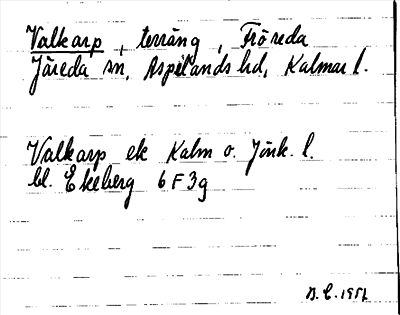 Valkarp, terräng, Fröreda
Järeda sn, Aspelands hd, Kalmar l.
Valkarp ek Kalm o. Jönk. l.
bl. Ekeberg 6 F 3g